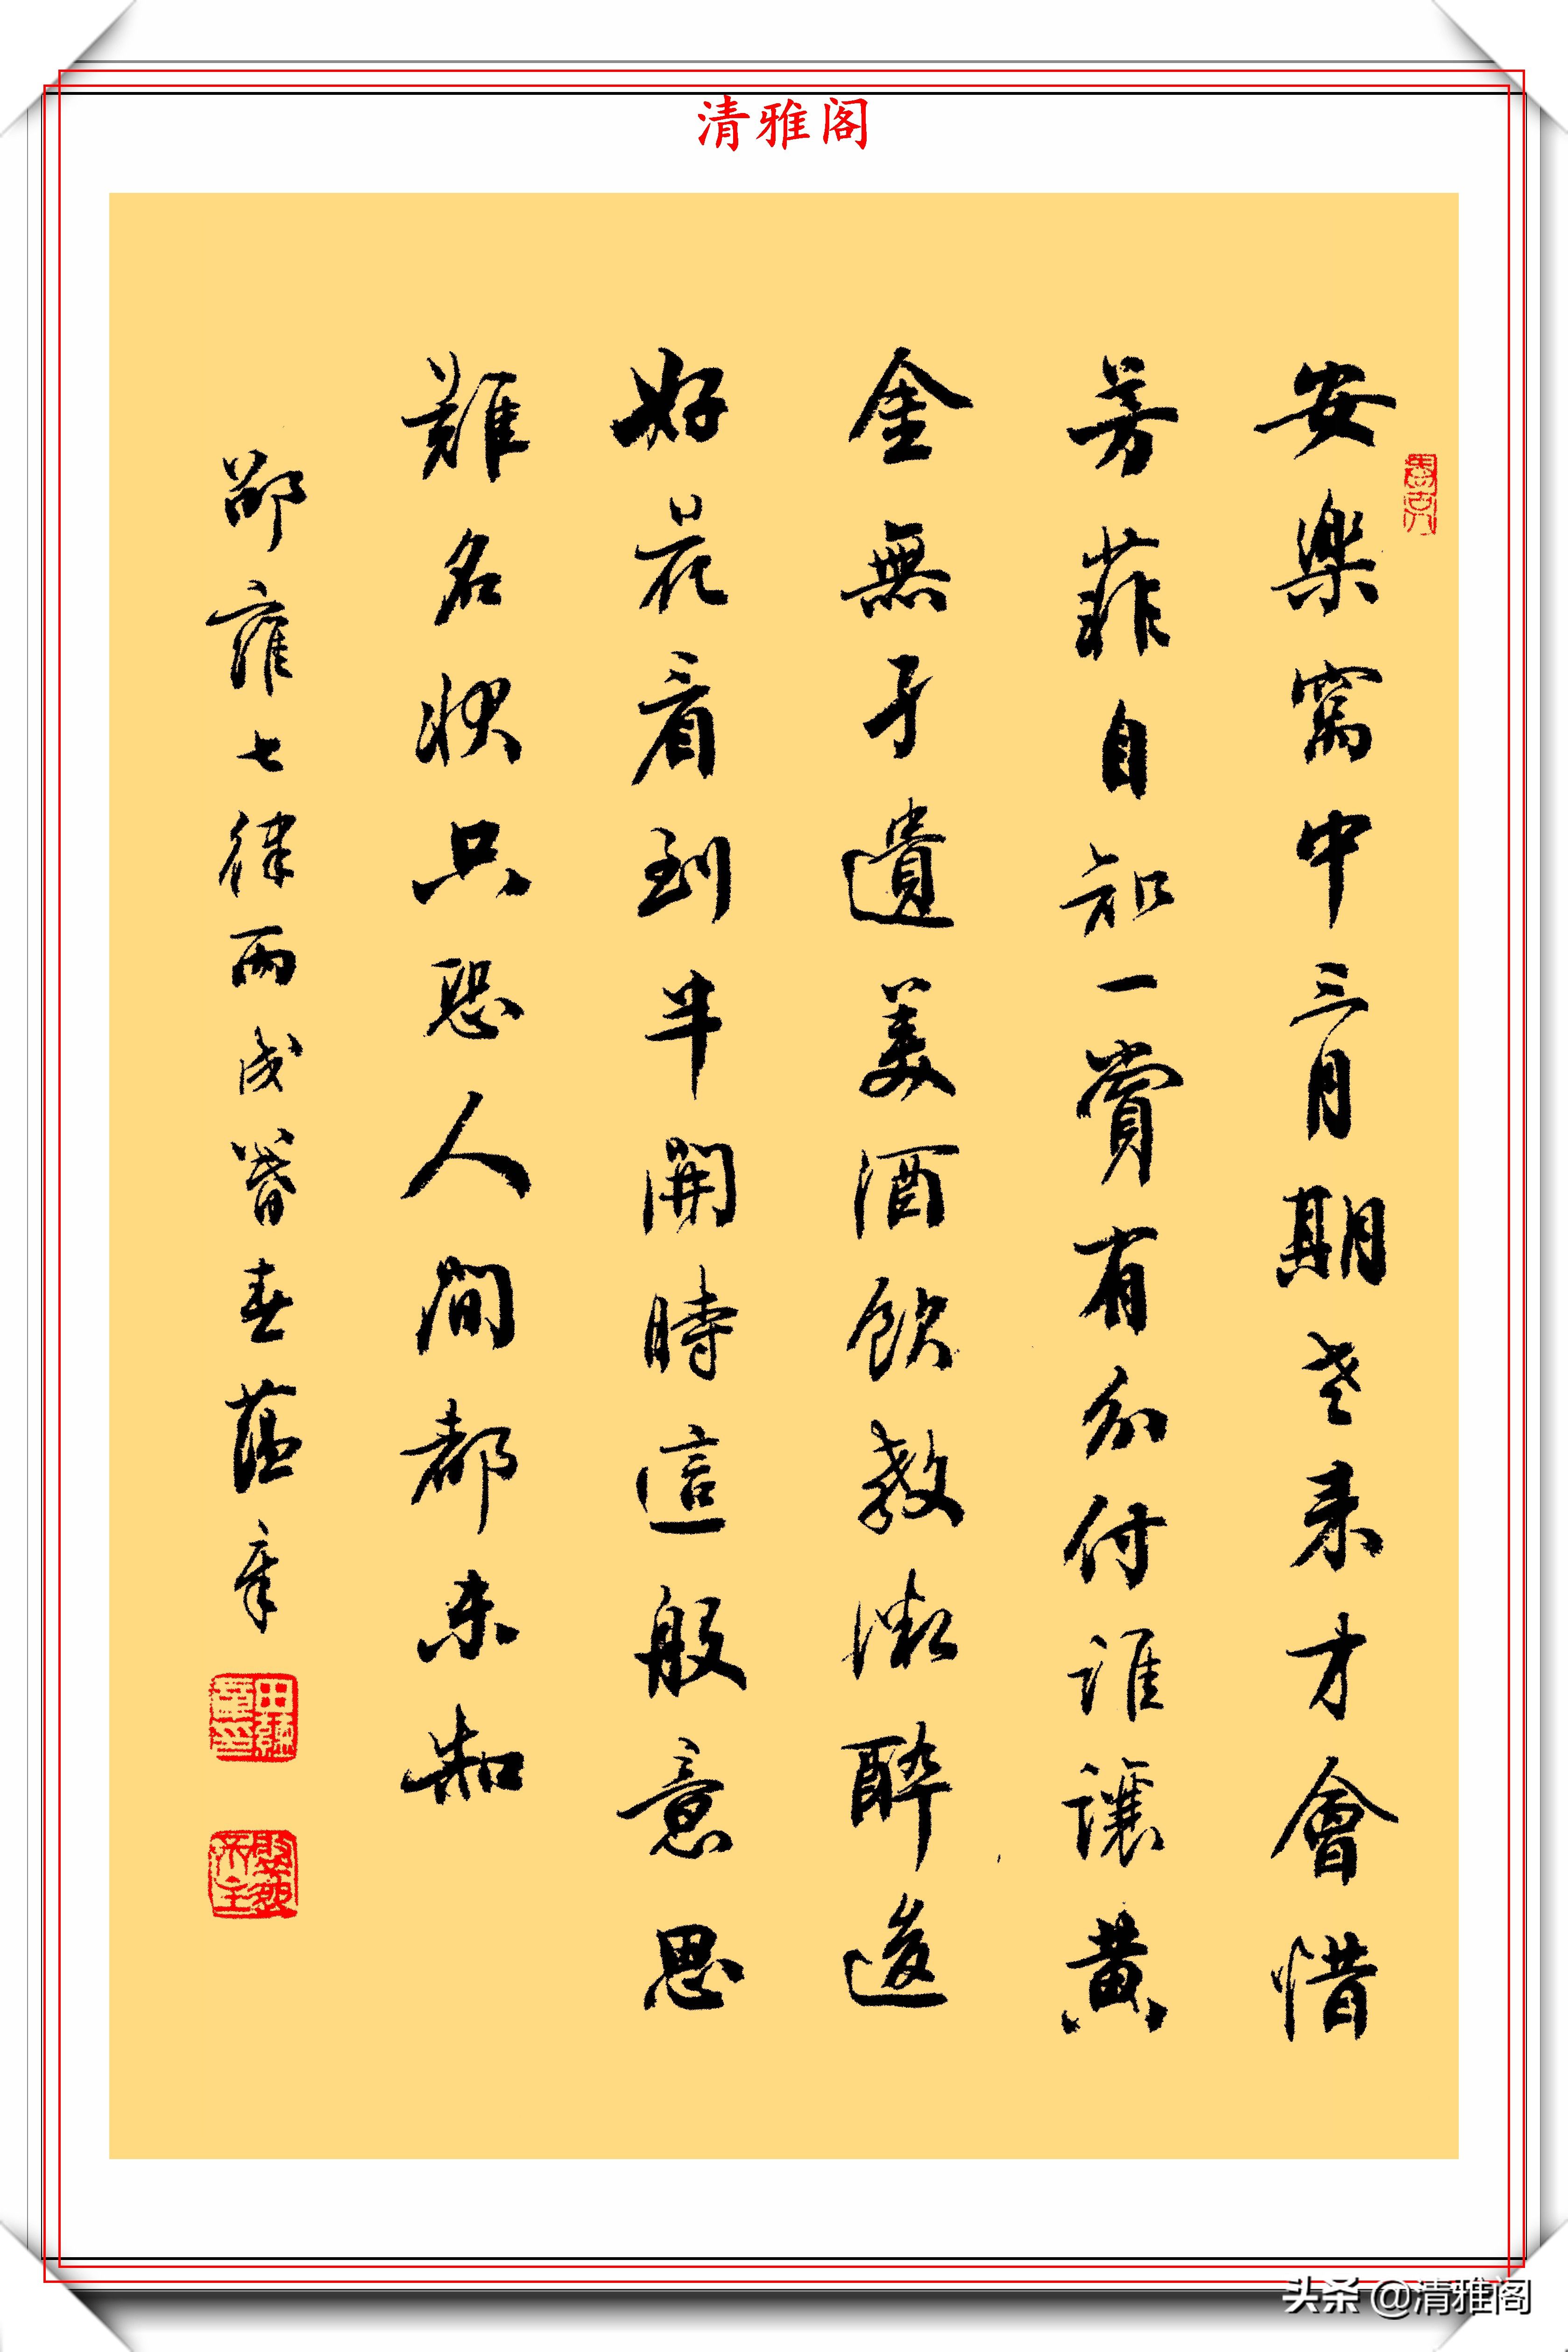 清雅阁
安楽窩中三月期老来才會惜
芳菲自知一賞有分付誰讓黃
金無孑遺美酒飲教微醉後
好花看到半開時這般意思
難名狀只恐人間都未知
邵雍七律丙戌暮春蘊章
田蘊章印
头条 @清雅阁